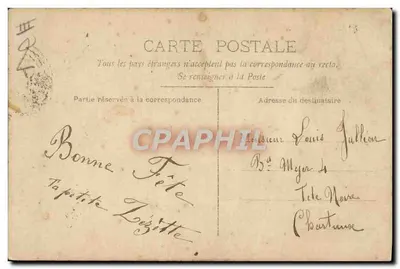 CARTE POSTALE
Tous les pays étrangers n'acceptent pas la correspondance au recto.
Se renseigner à la Poste
Partie réservée à la correspondance
Adresse du destinataire
Bonne Fête
Ta petite Zézette
Monsieur Louis Jullien
Bd Meyer 4
Tête Noire
Chartreux
CPARAMA